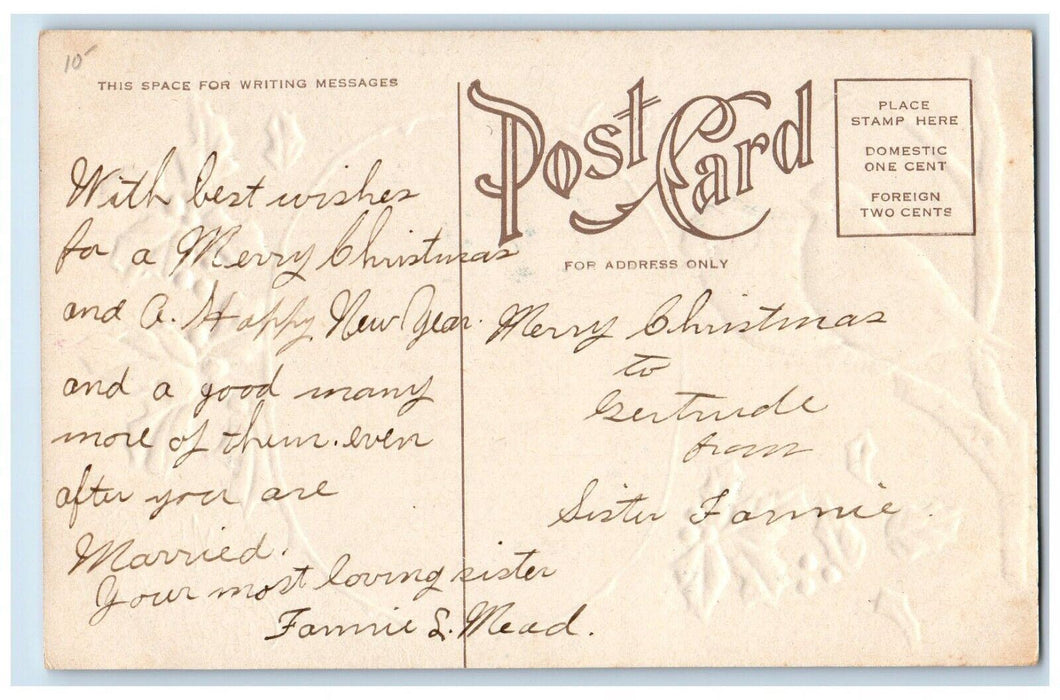 10-
THIS SPACE FOR WRITING MESSAGES
With best wishes
for a Merry Christmas
and A. Happy New Year.
and a good many
more of them. even
after you are
Married.
Your most loving sister
Fannie L. Mead.
Post Card
PLACE
STAMP HERE
DOMESTIC
ONE CENT
FOREIGN
TWO CENTS
FOR ADDRESS ONLY
Merry Christmas
to
Gertrude
from
Sister Fannie.